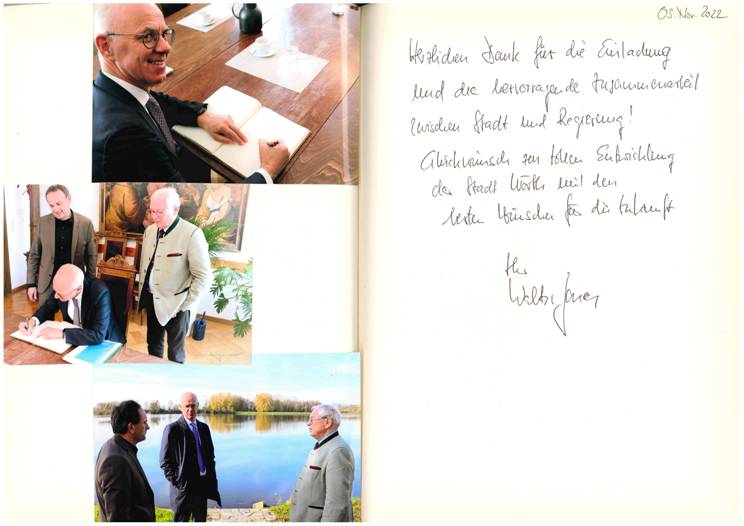 03. Nov. 2022
Herzlichen Dank für die Einladung
und die hervorragende Zusammenarbeit
zwischen Stadt und Regierung!
Glückwunsch zur tollen Entwicklung
der Stadt Wörth mit den
besten Wünschen für die Zukunft
Ihr
Walter